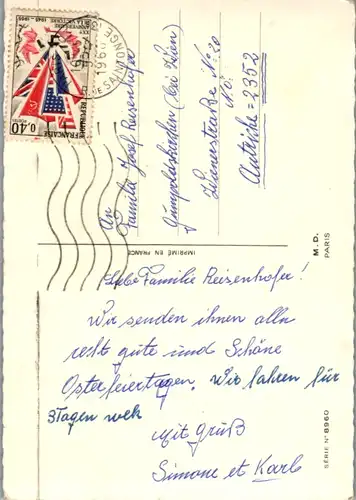 XXe ANNIVERSAIRE DE LA VICTOIRE 1945-1965
REPUBLIQUE FRANÇAISE
POSTES
0,40
An
Familie Josef Reisenhofer
Gumpoldskirchen (bei Wien)
Wienerstraße No: 20
N.Ö.
Autriche = 2352
IMPRIMÉ EN FRANCE
M.D.
PARIS
Liebe Familie Reisenhofer!
Wir senden ihnen alln
recht gute und Schöne
Osterfeiertagen. Wir fahren für
3Tagen wek
Mit Gruß
Simone et Karl
SÉRIE N° 8960